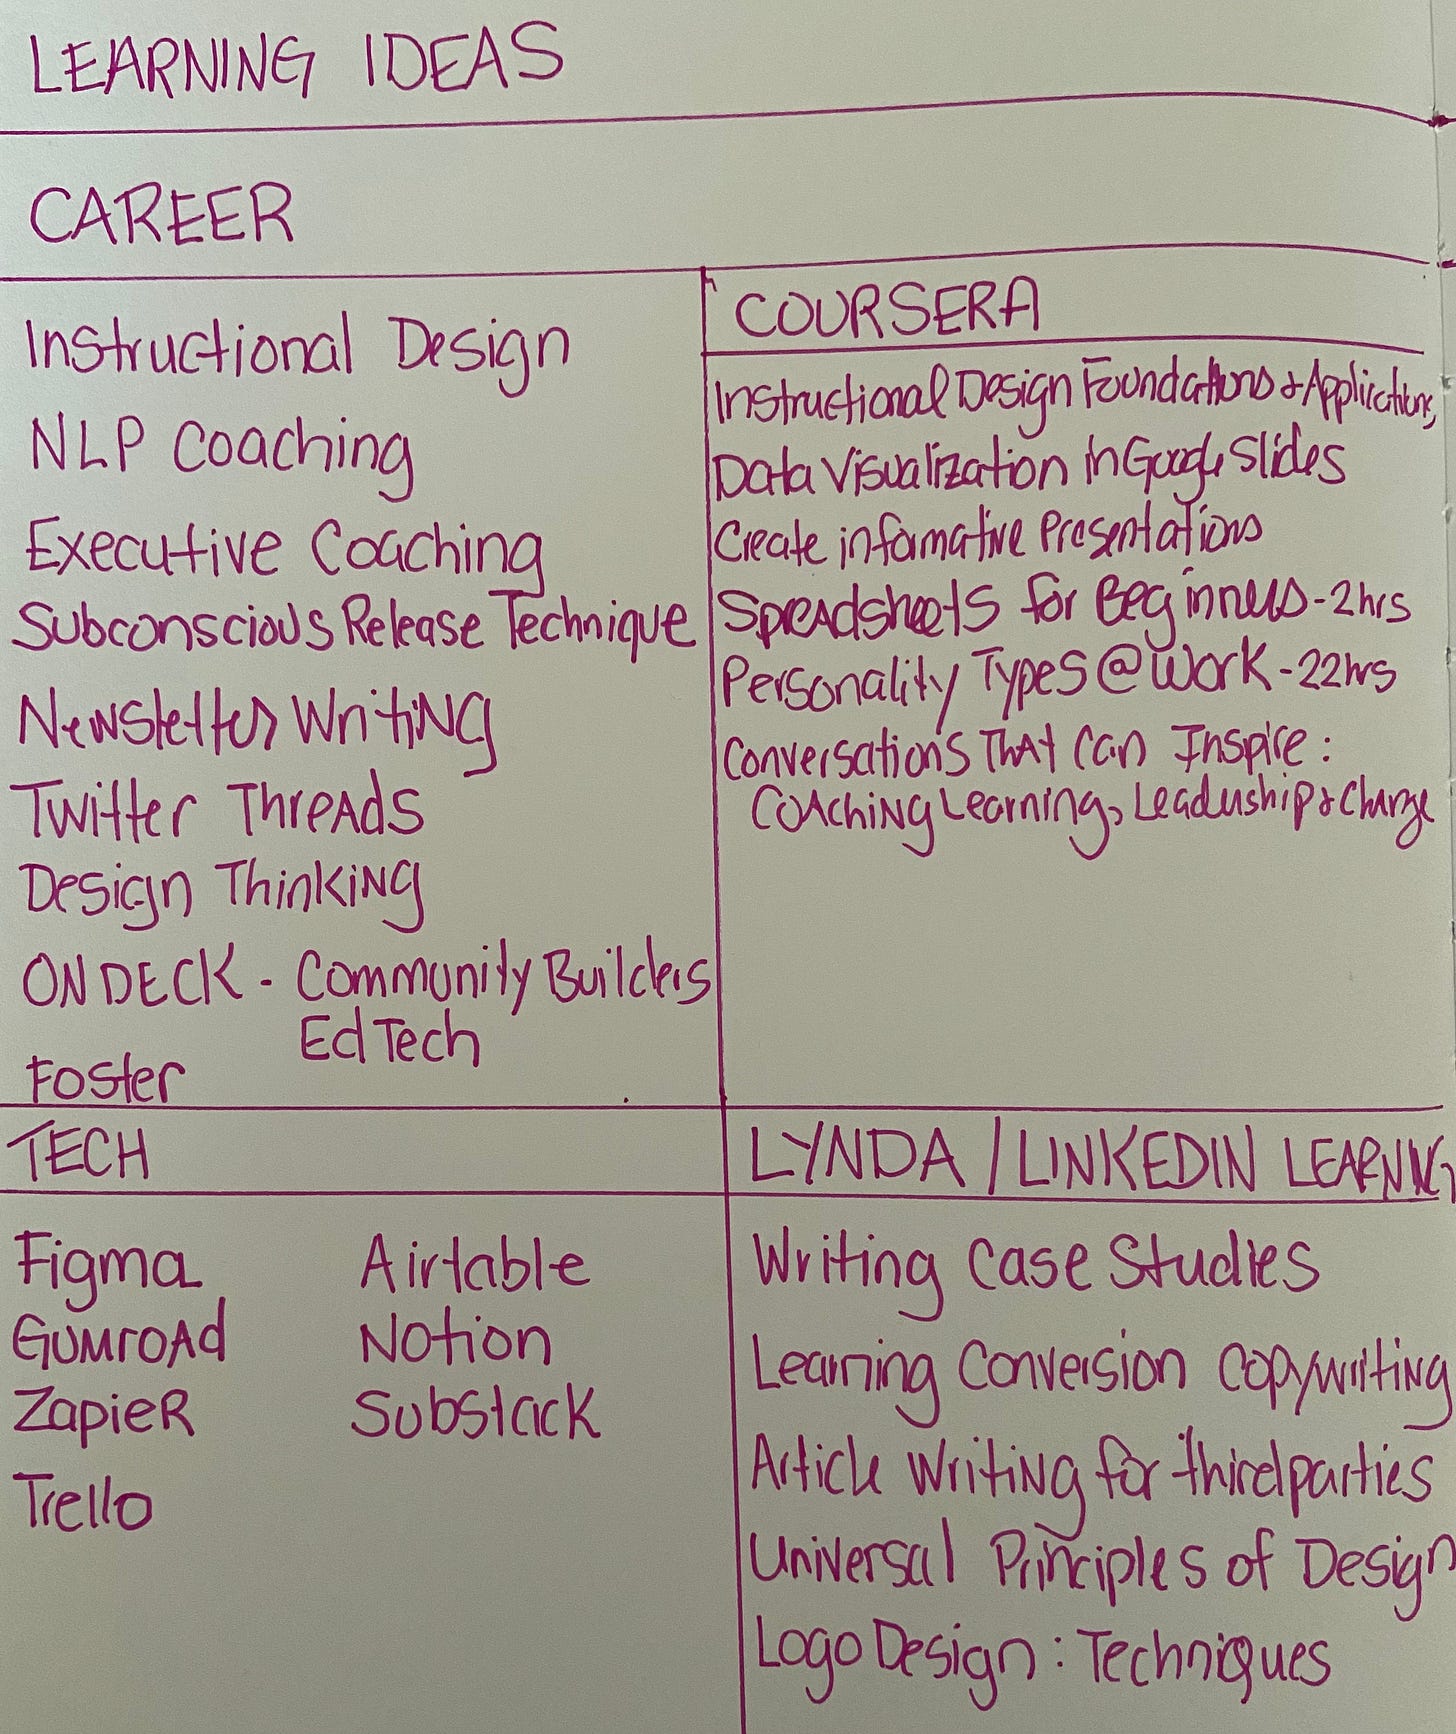 LEARNING IDEAS
CAREER
Instructional Design
NLP Coaching
Executive Coaching
Subconscious Release Technique
Newsletter Writing
Twitter Threads
Design Thinking
ON DECK - Community Builders
EdTech
Foster
COURSERA
Instructional Design Foundations & Applications
Data Visualization in Google Slides
Create informative Presentations
Spreadsheets for Beginners - 2hrs
Personality Types @ Work - 22hrs
Conversations That Can Inspire:
Coaching Learning, Leadership & Change
TECH
Figma
Gumroad
Zapier
Trello
Airtable
Notion
Substack
LYNDA / LINKEDIN LEARNING
Writing Case Studies
Learning Conversion Copywriting
Article Writing for third parties
Universal Principles of Design
Logo Design: Techniques